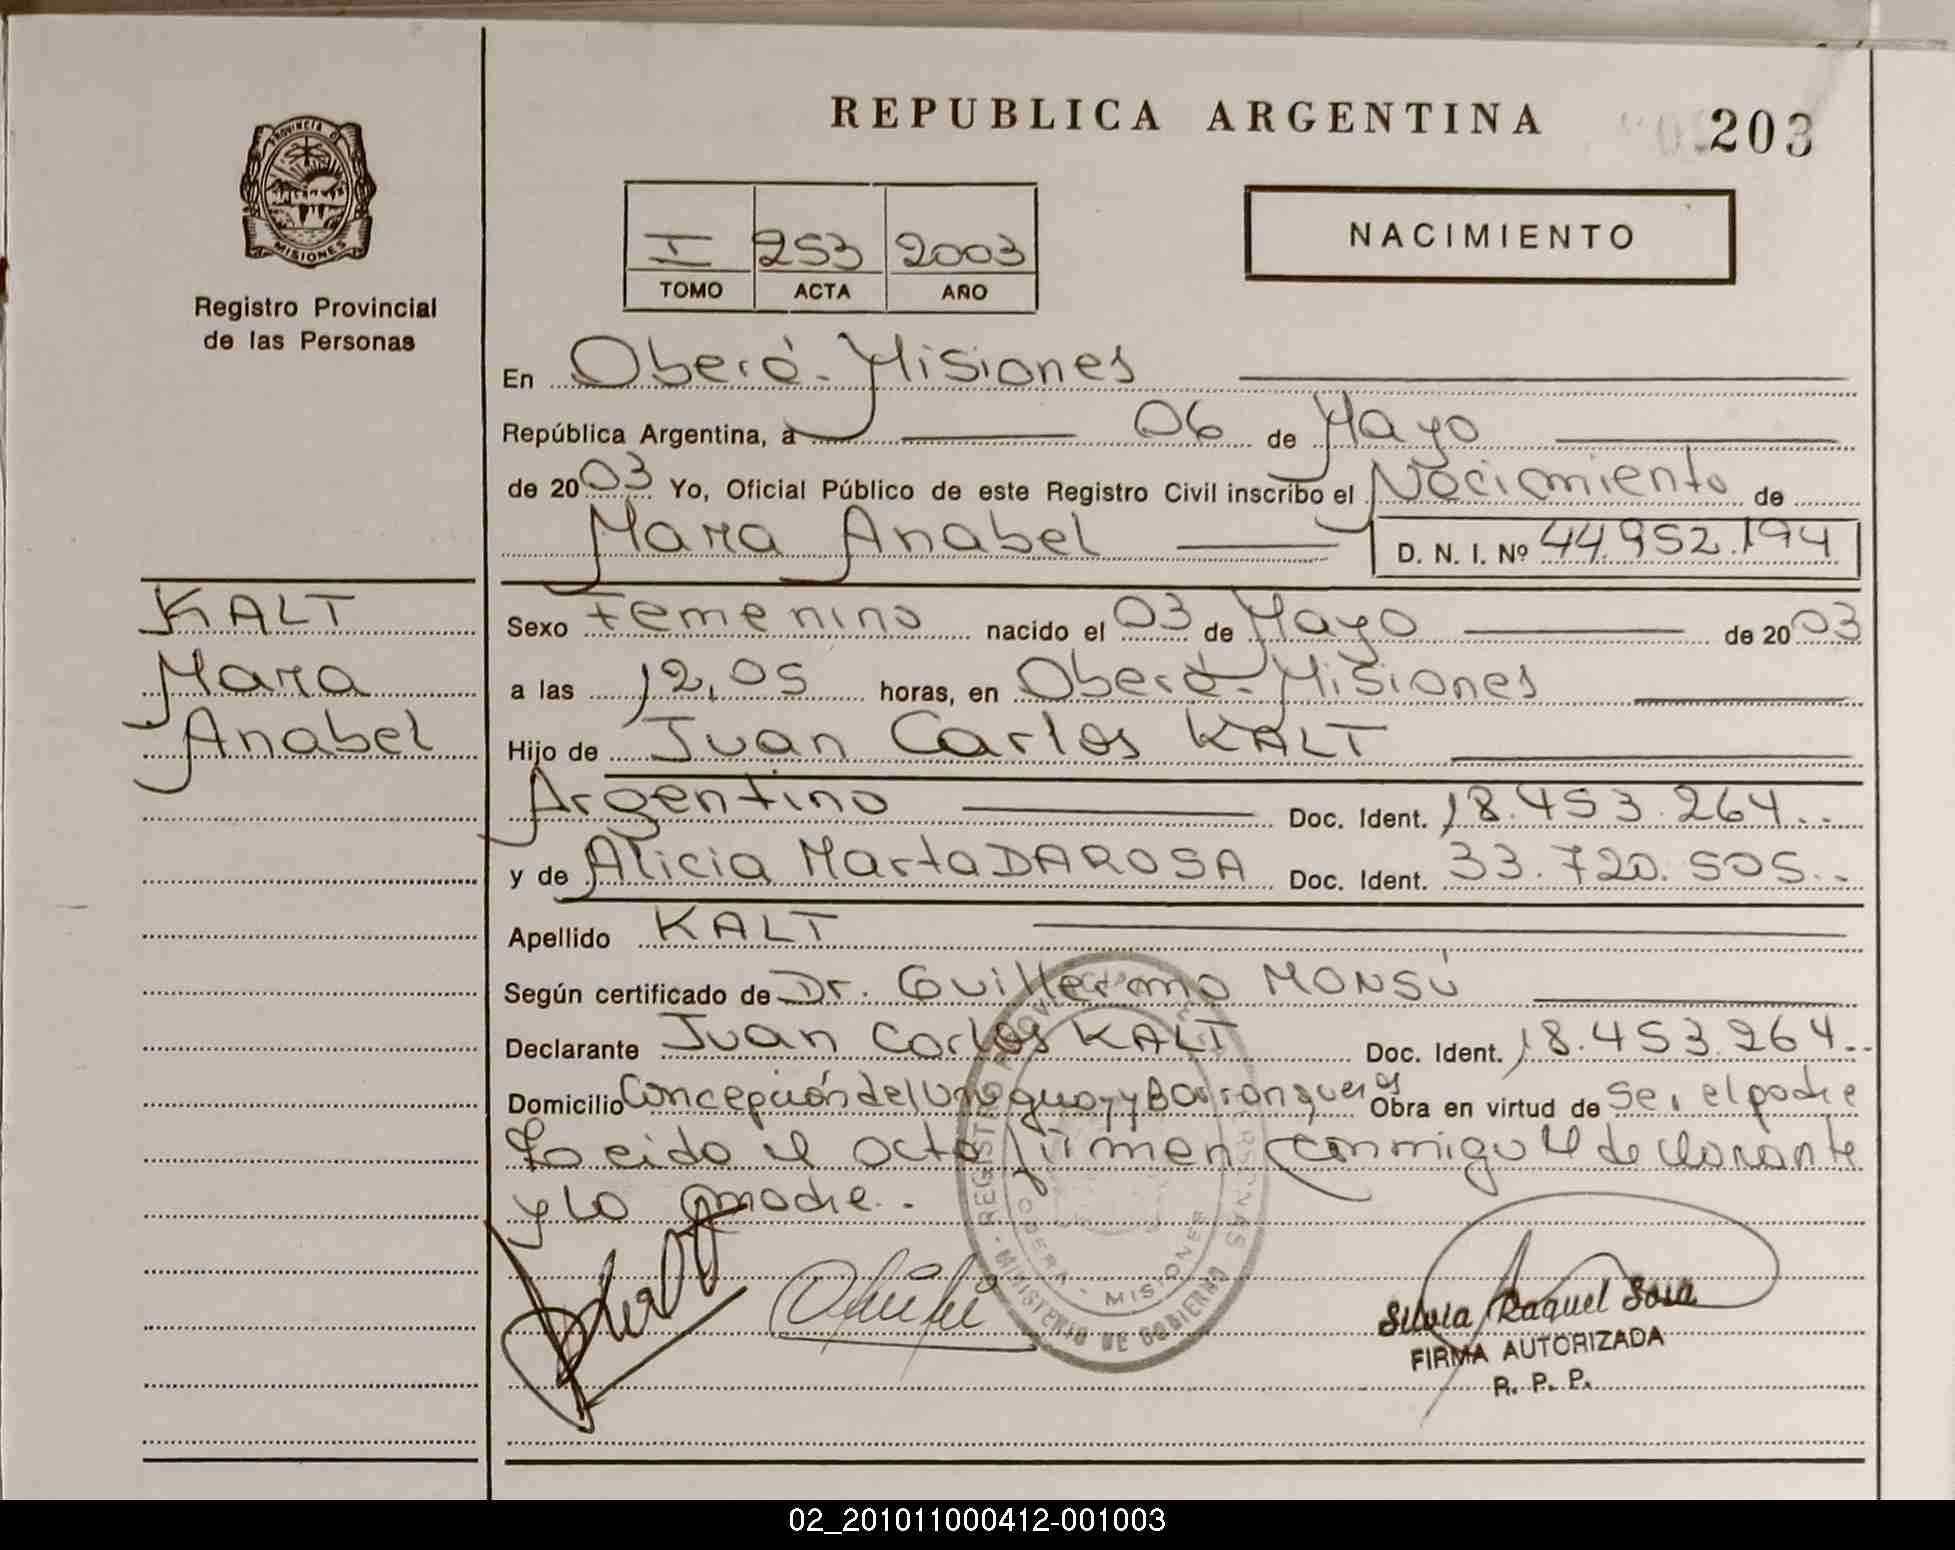 REPUBLICA ARGENTINA
203
PROVINCIA DE
MISIONES
Registro Provincial
de las Personas
I 253 2003
TOMO ACTA AÑO
NACIMIENTO
En Oberá - Misiones
República Argentina, a 06 de Mayo
de 2003 Yo, Oficial Público de este Registro Civil inscribo el Nacimiento de
Mara Anabel D. N. I. Nº 44.952.194
KALT
Mara
Anabel
Sexo Femenino nacido el 03 de Mayo de 2003
a las 12,05 horas, en Oberá - Misiones
Hijo de Juan Carlos KALT
Argentino Doc. Ident. 18.453.264..
y de Alicia Marta DAROSA Doc. Ident. 33.720.505..
Apellido KALT
Según certificado de Dr. Guillermo MONSÚ
Declarante Juan Carlos KALT Doc. Ident. 18.453.264..
Domicilio Concepción del Uruguay y Barranqueras Obra en virtud de Ser el padre
Leido el acta firman conmigo el declarante
y la madre..
REGISTRO PROVINCIAL DE LAS PERSONAS
OBERA - MISIONES
MINISTERIO DE GOBIERNO
Silvia Raquel Sosa
FIRMA AUTORIZADA
R. P. P.
02_201011000412-001003